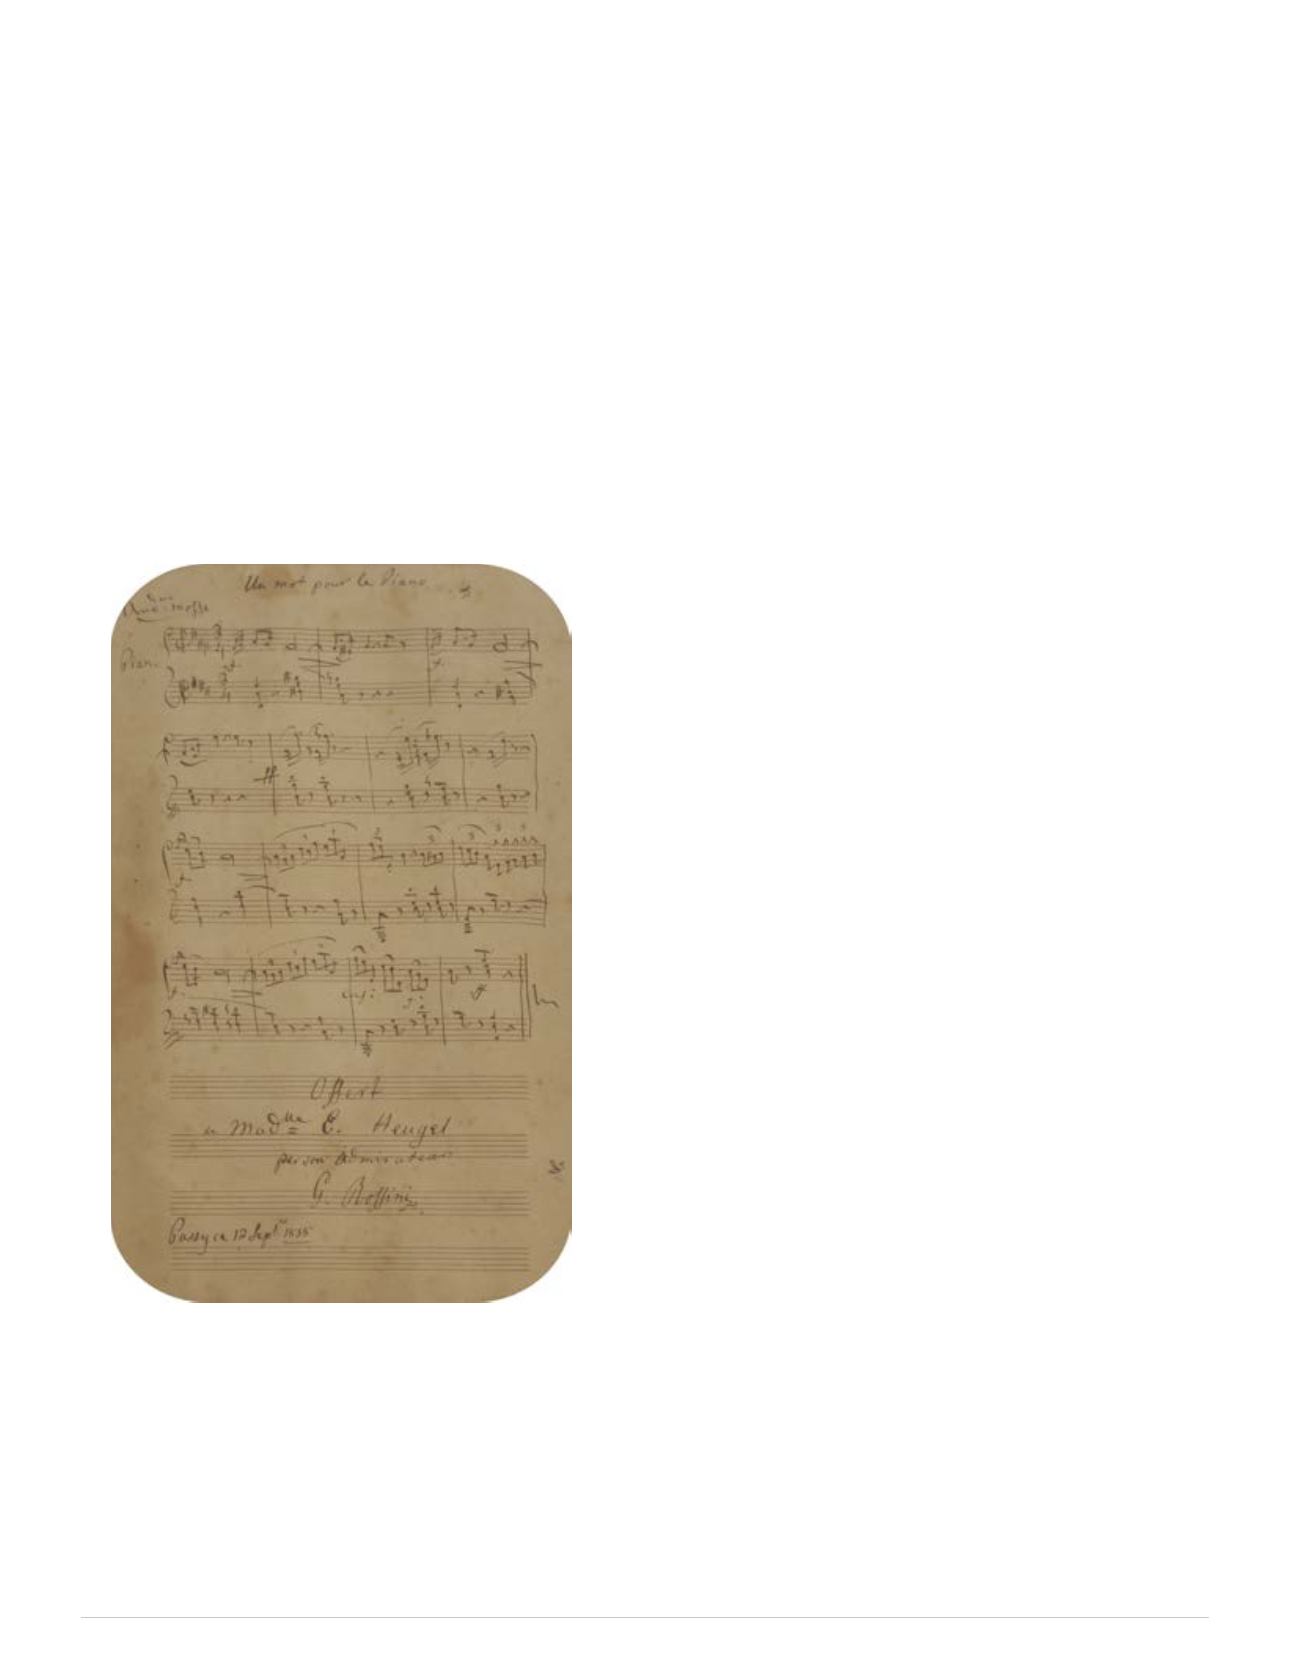 Un mot pour le Piano
Piano
Offert
a Mad^lle E. Heugel
par son admirateur
G. Rossini
Passy ce 12 Sept^re